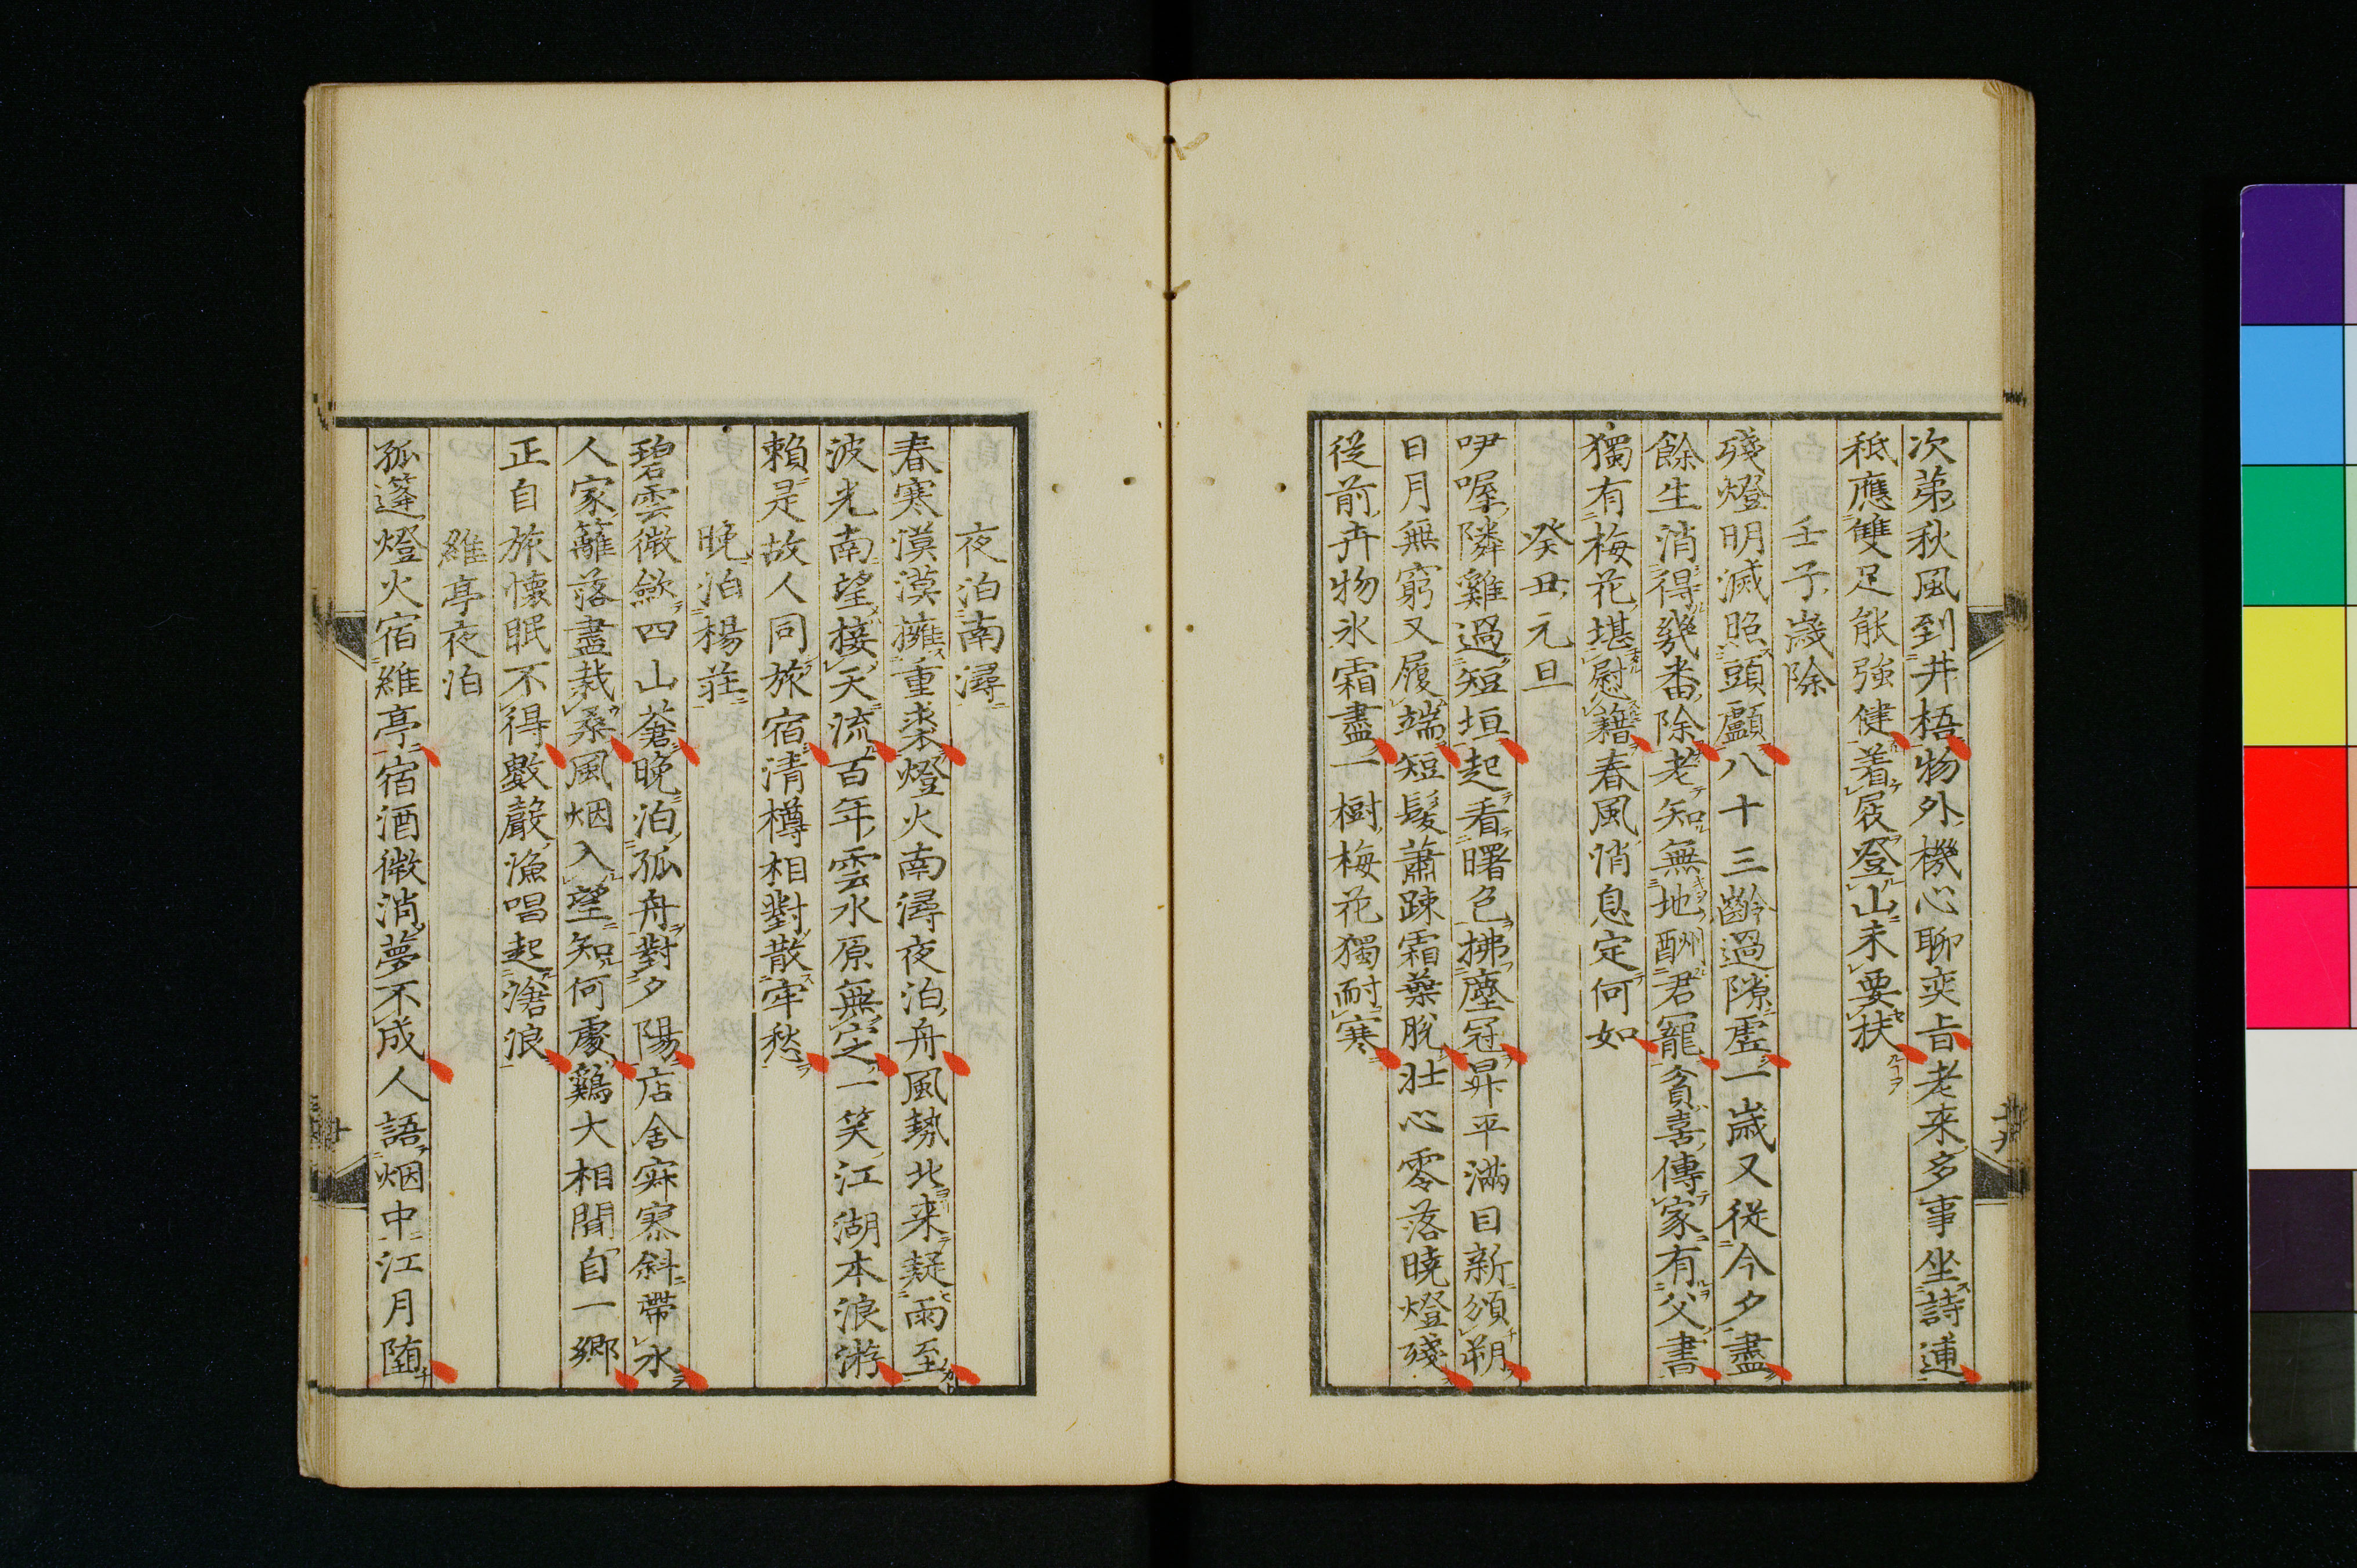 次第秋風到井梧物外機心聊奕旨老来多事坐詩逋
秪應雙足能強健着屐登山未要扶
壬子歳除
殘燈明滅照頭顱八十三齡過隙虛一歳又從今夕盡
餘生消得幾番除老知無地酬君寵貧喜傳家有父書
獨有梅花堪慰藉春風消息定何如
癸丑元旦
咿喔隣雞過短垣起看曙色拂塵冠昇平滿目新頒朔
日月無窮又履端短髮蕭疎霜葉脫壮心零落曉燈殘
從前卉物氷霜盡一樹梅花獨耐寒
夜泊南潯
春寒漠漠擁重裘燈火南潯夜泊舟風勢北来疑雨至
波光南望接天流百年雲水原無定一笑江湖本浪游
賴是故人同旅宿清樽相對散牢愁
晚泊楊莊
碧雲微歛四山蒼晚泊孤舟對夕陽店舍寂寥斜帶水
人家籬落盡栽桑風烟入望知何處鷄犬相聞自一郷
正自旅懷眠不得數嚴漁唱起滄浪
維亭夜泊
孤篷燈火宿維亭宿酒微消夢不成人語烟中江月堕